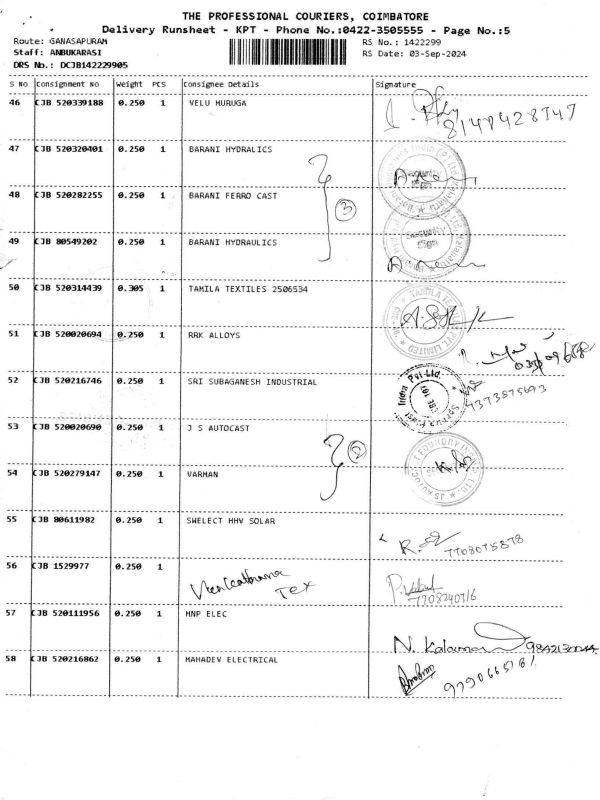 THE PROFESSIONAL COURIERS, COIMBATORE
Delivery Runsheet - KPT - Phone No.:0422-3505555 - Page No.:5
Route: GANASAPURAM RS No.: 1422299
Staff: ANBUKARASI RS Date: 03-Sep-2024
DRS No.: DCJB142229905
S No Consignment No Weight PCS Consignee Details Signature
46 CJB 520339188 0.250 1 VELU MURUGA
47 CJB 520320401 0.250 1 BARANI HYDRALICS
48 CJB 520282255 0.250 1 BARANI FERRO CAST
3
49 CJB 80549202 0.250 1 BARANI HYDRAULICS
50 CJB 520314439 0.305 1 TAMILA TEXTILES 2506534
51 CJB 520020694 0.250 1 RRK ALLOYS
52 CJB 520216746 0.250 1 SRI SUBAGANESH INDUSTRIAL
53 CJB 520020690 0.250 1 J S AUTOCAST
2
54 CJB 520279147 0.250 1 VARMAN
55 CJB 80611982 0.250 1 SWELECT HHV SOLAR
7708075878
56 CJB 1529977 0.250 1
Tex
57 CJB 520111956 0.250 1 MNP ELEC
58 CJB 520216862 0.250 1 MAHADEV ELECTRICAL